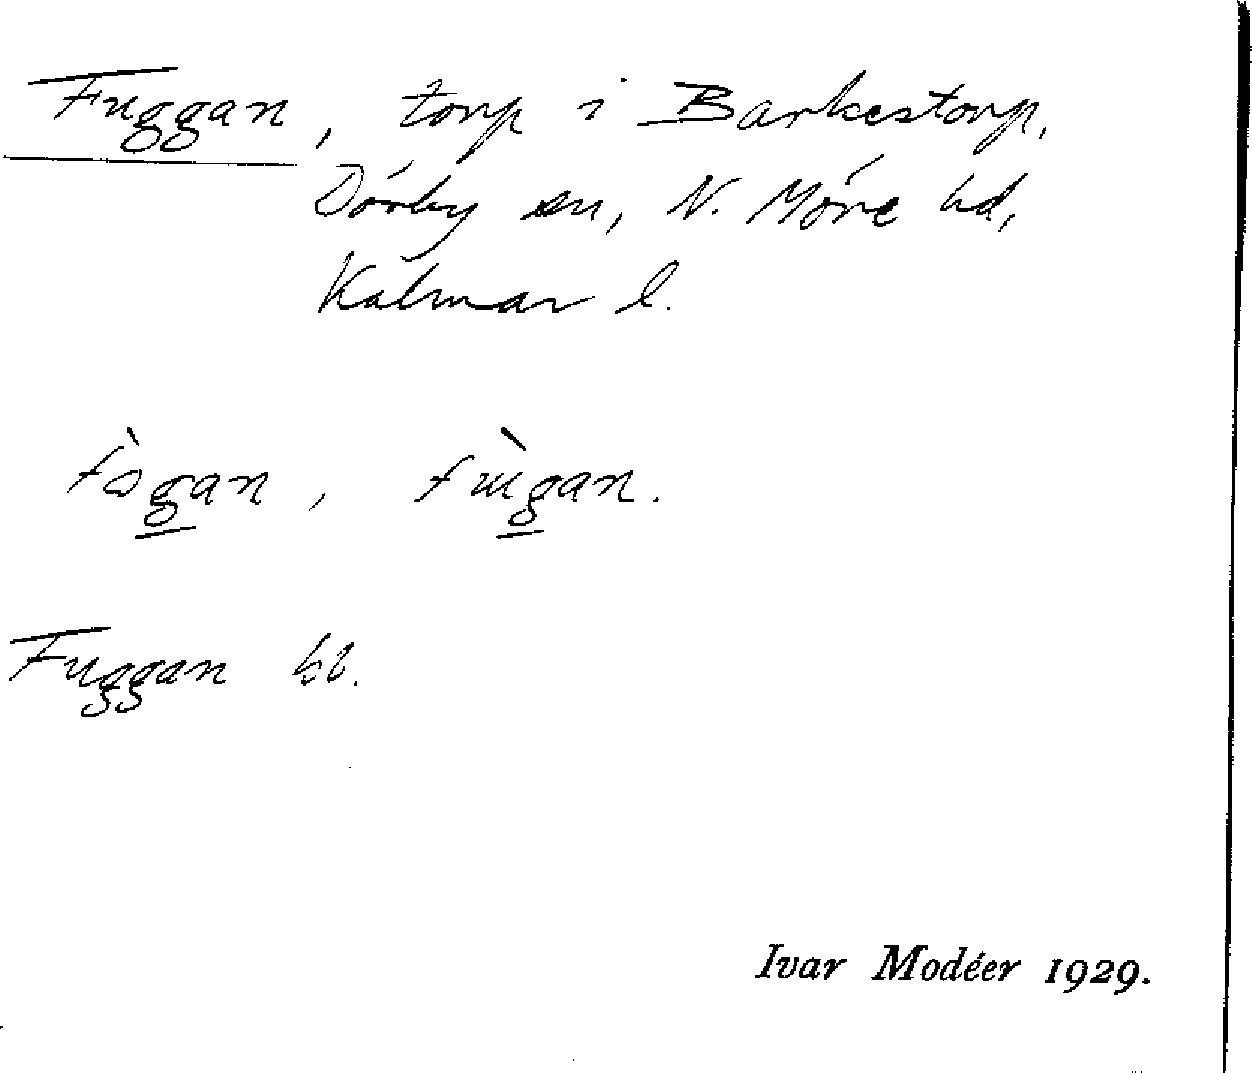 Fuggan, torp i Barkestorp,
Dörby sn, N. Möre hd,
Kalmar l.
fògan, fɯ̀gan.
Fuggan kb.
Ivar Modéer 1929.